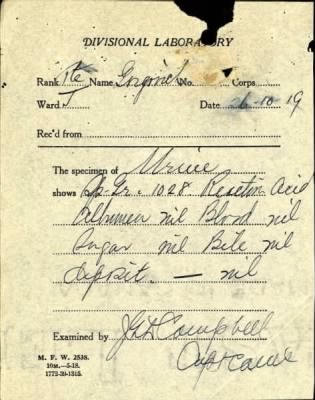 DIVISIONAL LABORATORY
Rank Pte Name No. Corps
Ward J Date 6-10-19
Rec'd from
The specimen of Urine
shows Sp. Gr. 1028 Reaction Acid
Albumen nil Blood nil
Sugar nil Bile nil
Deposit. — nil
Examined by Campbell
Capt CAMC
M. F. W. 2538.
10M.—5-18.
1772-39-1315.